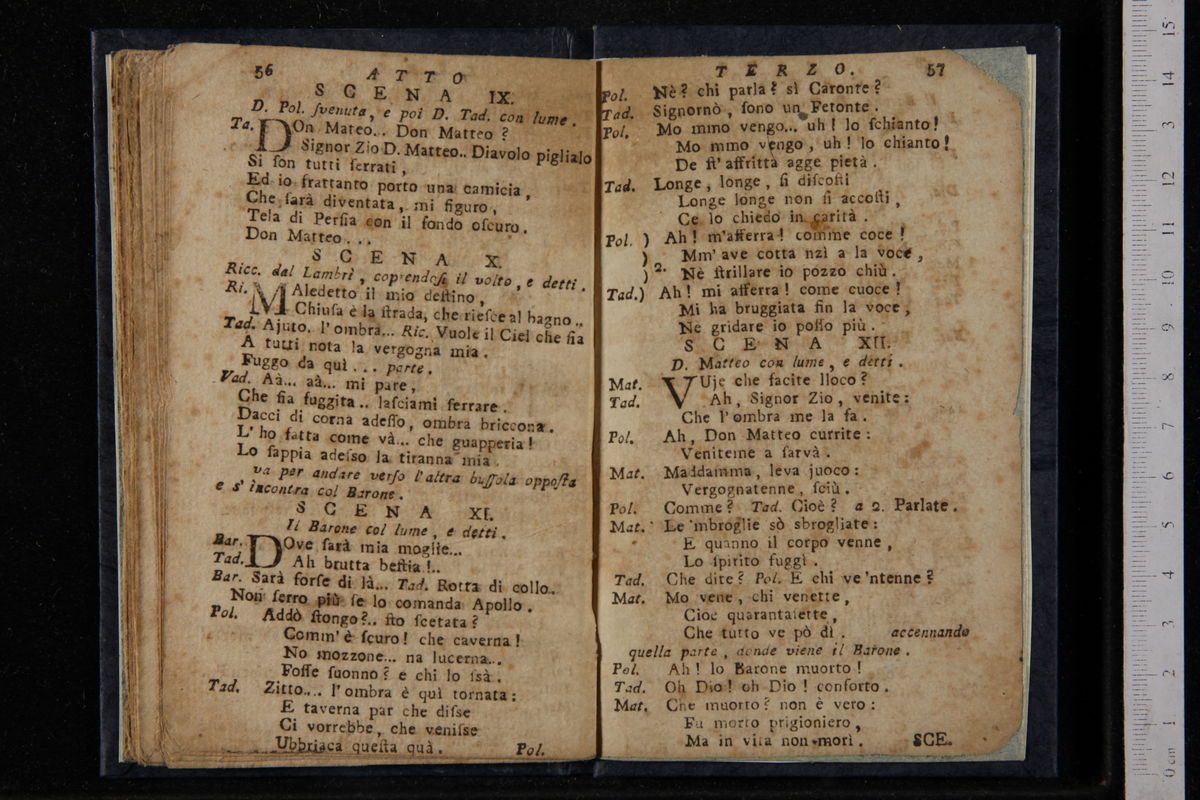 56
ATTO
SCENA IX.
D. Pol. ſvenuta, e poi D. Tad. con lume.
Ta. DOn Mateo.. Don Matteo?
Signor Zio D. Matteo.. Diavolo piglialo
Si ſon tutti ſerrati,
Ed io frattanto porto una camicia,
Che ſarà diventata, mi figuro,
Tela di Perſia con il fondo oſcuro.
Don Matteo...
SCENA X.
Ricc. dal Lambrì, coprendoſi il volto, e detti.
Ri. MAledetto il mio deſtino,
Chiuſa è la ſtrada, che rieſce al bagno..
Tad. Ajuto. l'ombra... Ric. Vuole il Ciel che ſia
A tutti nota la vergogna mia.
Fuggo da quì... parte.
Vad. Aà... aà... mi pare,
Che ſia fuggita.. laſciami ſerrare.
Dacci di corna adeſſo, ombra briccona.
L'ho fatta come và... che guapperia!
Lo ſappia adeſso la tiranna mia.
va per andare verſo l'altra buſſola oppoſta
e s'incontra col Barone.
SCENA XI.
Il Barone col lume, e detti.
Bar. DOve ſarà mia moglie...
Tad. Ah brutta beſtia!..
Bar. Sarà forſe di là... Tad. Rotta di collo.
Non ſerro più ſe lo comanda Apollo.
Pol. Addò ſtongo?.. ſto ſcetata?
Comm'è ſcuro! che caverna!
No mozzone... na lucerna...
Foſſe ſuonno? e chi lo ſsà.
Tad. Zitto.... l'ombra è quì tornata:
E taverna par che diſse
Ci vorrebbe, che veniſse
Ubbriaca queſta quà. Pol.
TERZO. 57
Pol. Nè? chi parla? sì Caronte?
Tad. Signornò, ſono un Fetonte.
Pol. Mo mmo vengo... uh! lo ſchianto!
Mo mmo vengo, uh! lo chianto!
De ſt'affrittà agge pietà.
Tad. Longe, longe, ſi diſcoſti
Longe longe non ſi accoſti,
Ce lo chiedo in carità.
Pol. ) Ah! m'afferra! comme coce!
) Mm'ave cotta nzì a la voce,
) 2. Nè ſtrillare io pozzo chiù.
Tad.) Ah! mi afferra! come cuoce!
Mi ha bruggiata fin la voce,
Ne gridare io poſſo più.
SCENA XII.
D. Matteo con lume, e detti.
Mat. VUje che facite lloco?
Tad. Ah, Signor Zio, venite:
Che l'ombra me la fa.
Pol. Ah, Don Matteo currite:
Veniteme a ſarvà.
Mat. Maddamma, leva juoco:
Vergognatenne, ſciù.
Pol. Comme? Tad. Cioè? a 2. Parlate.
Mat. Le 'mbroglie sò sbrogliate:
E quanno il corpo venne,
Lo ſpirito fuggì.
Tad. Che dite? Pol. E chi ve 'ntenne?
Mat. Mo vene, chi venette,
Cioè quarantaſette,
Che tutto ve pò dì. accennando
quella parte, donde viene il Barone.
Pol. Ah! lo Barone muorto!
Tad. Oh Dio! oh Dio! conforto.
Mat. Che muorto? non è vero:
Fu morto prigioniero,
Ma in vita non morì. SCE.
0 cm 1 2 3 4 5 6 7 8 9 10 11 12 13 14 15